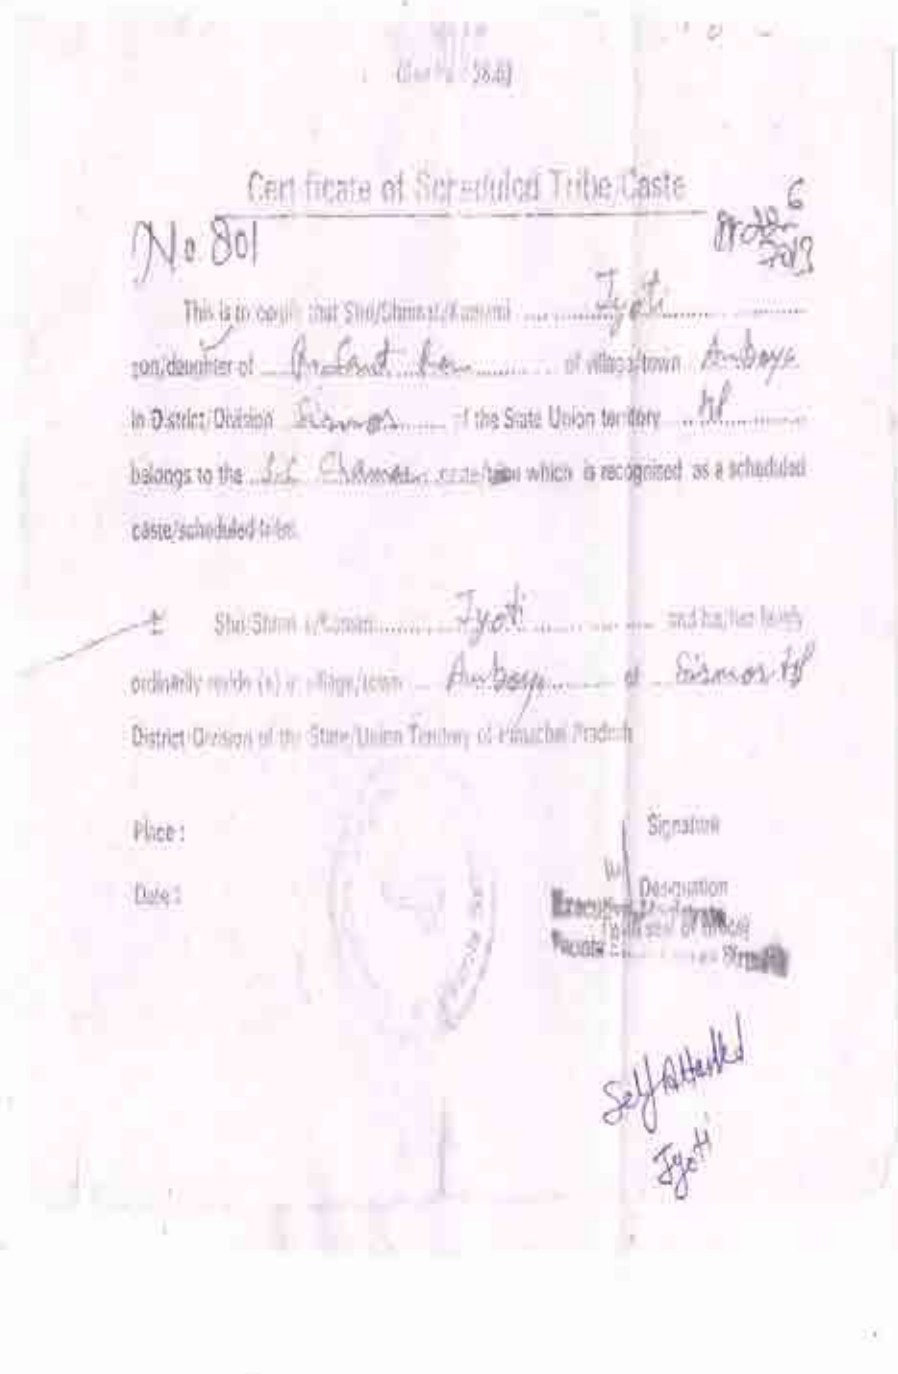 Certificate of Scheduled Tribe/Caste
No 801
2013
This is to certify that Shri/Shrimati/Kumari ........ Jyoti ........
son/daughter of ........ of village/town Amboya
in District/Division Sirmor ........ of the State Union territory .. HP ........
belongs to the .. S.C ........ caste/tribe which is recognised as a scheduled
caste/scheduled tribe.
Shri/Shrimati/Kumari ........ Jyoti ........ and his/her family
ordinarily reside (s) in village/town .... Amboya ........ of .... Sirmor HP
District/Division of the State/Union Territory of Himachal Pradesh
Place :
Signature
Date :
Designation
Executive Magistrate
Self Attested
Jyoti